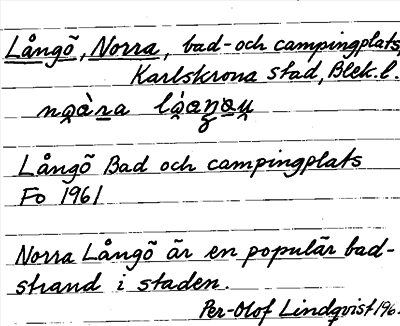 Långö, Norra, bad- och campingplats
Karlskrona stad, Blek.l.
Långö Bad och campingplats
Fo 1961
Norra Långö är en populär bad-
strand i staden.
Per-Olof Lindqvist 196